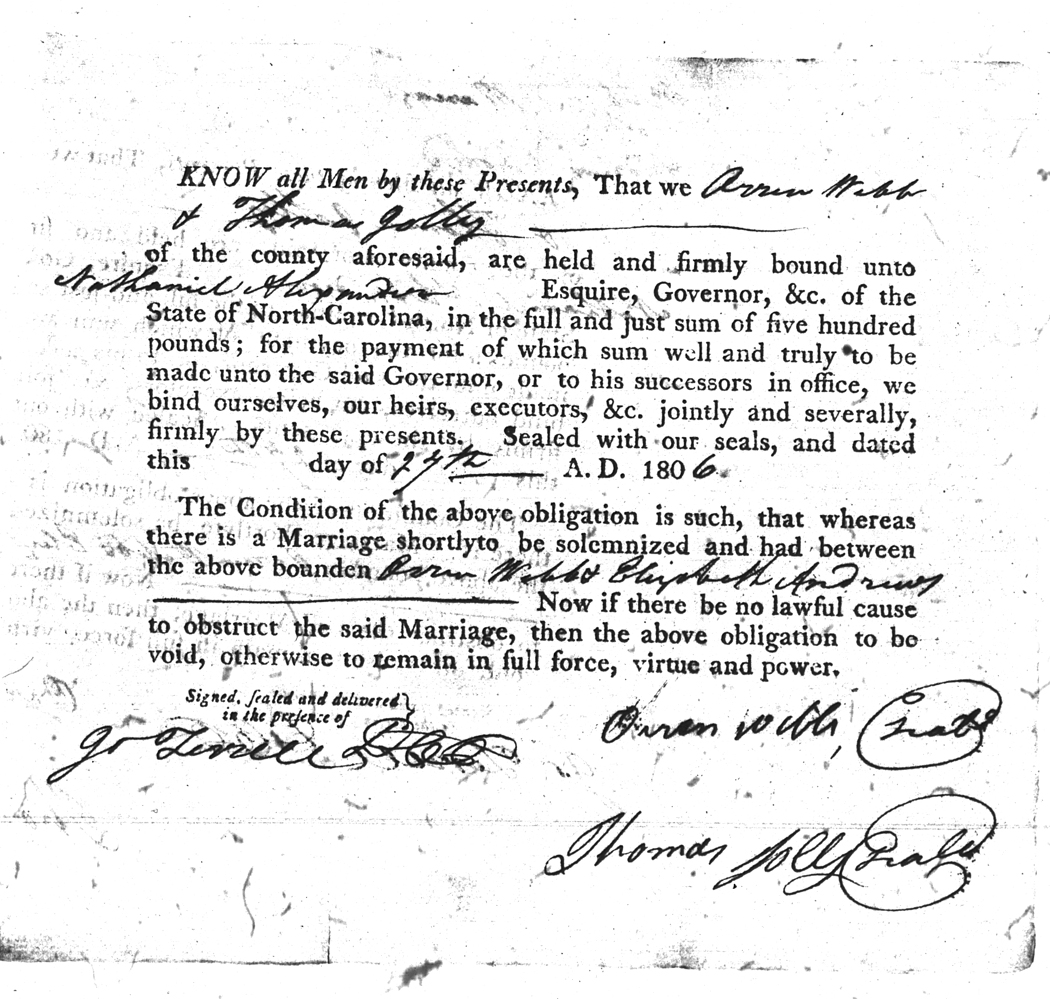 KNOW all Men by these Presents, That we Orren Webb
& Thomas Jolley
of the county aforesaid, are held and firmly bound unto
Nathaniel Alexander Esquire, Governor, &c. of the
State of North-Carolina, in the full and just sum of five hundred
pounds; for the payment of which sum well and truly to be
made unto the said Governor, or to his successors in office, we
bind ourselves, our heirs, executors, &c. jointly and severally,
firmly by these presents. Sealed with our seals, and dated
this day of 27th A. D. 1806
The Condition of the above obligation is such, that whereas
there is a Marriage shortlyto be solemnized and had between
the above bounden Orren Webb & Elizabeth Andrews
Now if there be no lawful cause
to obstruct the said Marriage, then the above obligation to be
void, otherwise to remain in full force, virtue and power.
Signed, sealed and delivered
in the presence of
Orren Webb, Seal
Jo Terrell
Thomas Jolly Seal